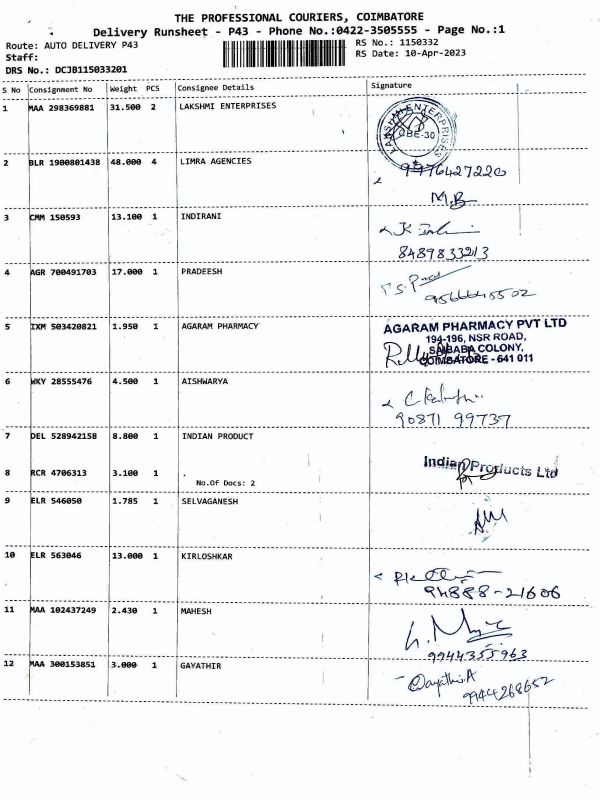 THE PROFESSIONAL COURIERS, COIMBATORE
Delivery Runsheet - P43 - Phone No.:0422-3505555 - Page No.:1
Route: AUTO DELIVERY P43
RS No.: 1150332
Staff:
RS Date: 10-Apr-2023
DRS No.: DCJB115033201
S No Consignment No Weight PCS Consignee Details Signature
1 MAA 298369881 31.500 2 LAKSHMI ENTERPRISES
LAKSHMI ENTERPRISES
CBE-30
2 BLR 1900801438 48.000 4 LIMRA AGENCIES 9976427220
M.B
3 CMM 150593 13.100 1 INDIRANI
K
8489833213
4 AGR 700491703 17.000 1 PRADEESH
9566645502
5 IXM 503420821 1.950 1 AGARAM PHARMACY AGARAM PHARMACY PVT LTD
194-196, NSR ROAD,
SAIBABA COLONY,
COIMBATORE - 641 011
6 WKY 28555476 4.500 1 AISHWARYA
90871 99737
7 DEL 528942158 8.800 1 INDIAN PRODUCT
Indian Products Ltd
8 RCR 4706313 3.100 1 .
No.Of Docs: 2
9 ELR 546050 1.785 1 SELVAGANESH
10 ELR 563046 13.000 1 KIRLOSHKAR
94888-21606
11 MAA 102437249 2.430 1 MAHESH
9944355963
12 MAA 300153851 3.000 1 GAYATHIR
Gayathir.A
9944268652